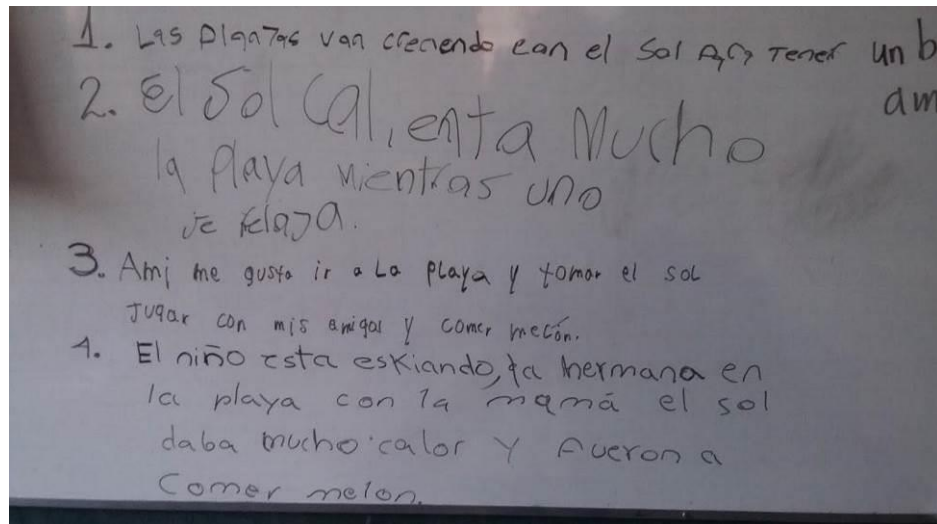 1. Las plantas van creciendo con el Sol para Tener un b
am
2. El Sol Calienta Mucho
la Playa mientras uno
se relaja.
3. Ami me gusta ir a La Playa y tomar el sol
Jugar con mis amigas y comer melón.
4. El niño esta eskiando, la hermana en
la playa con la mamá el sol
daba mucho calor y fueron a
Comer melon.